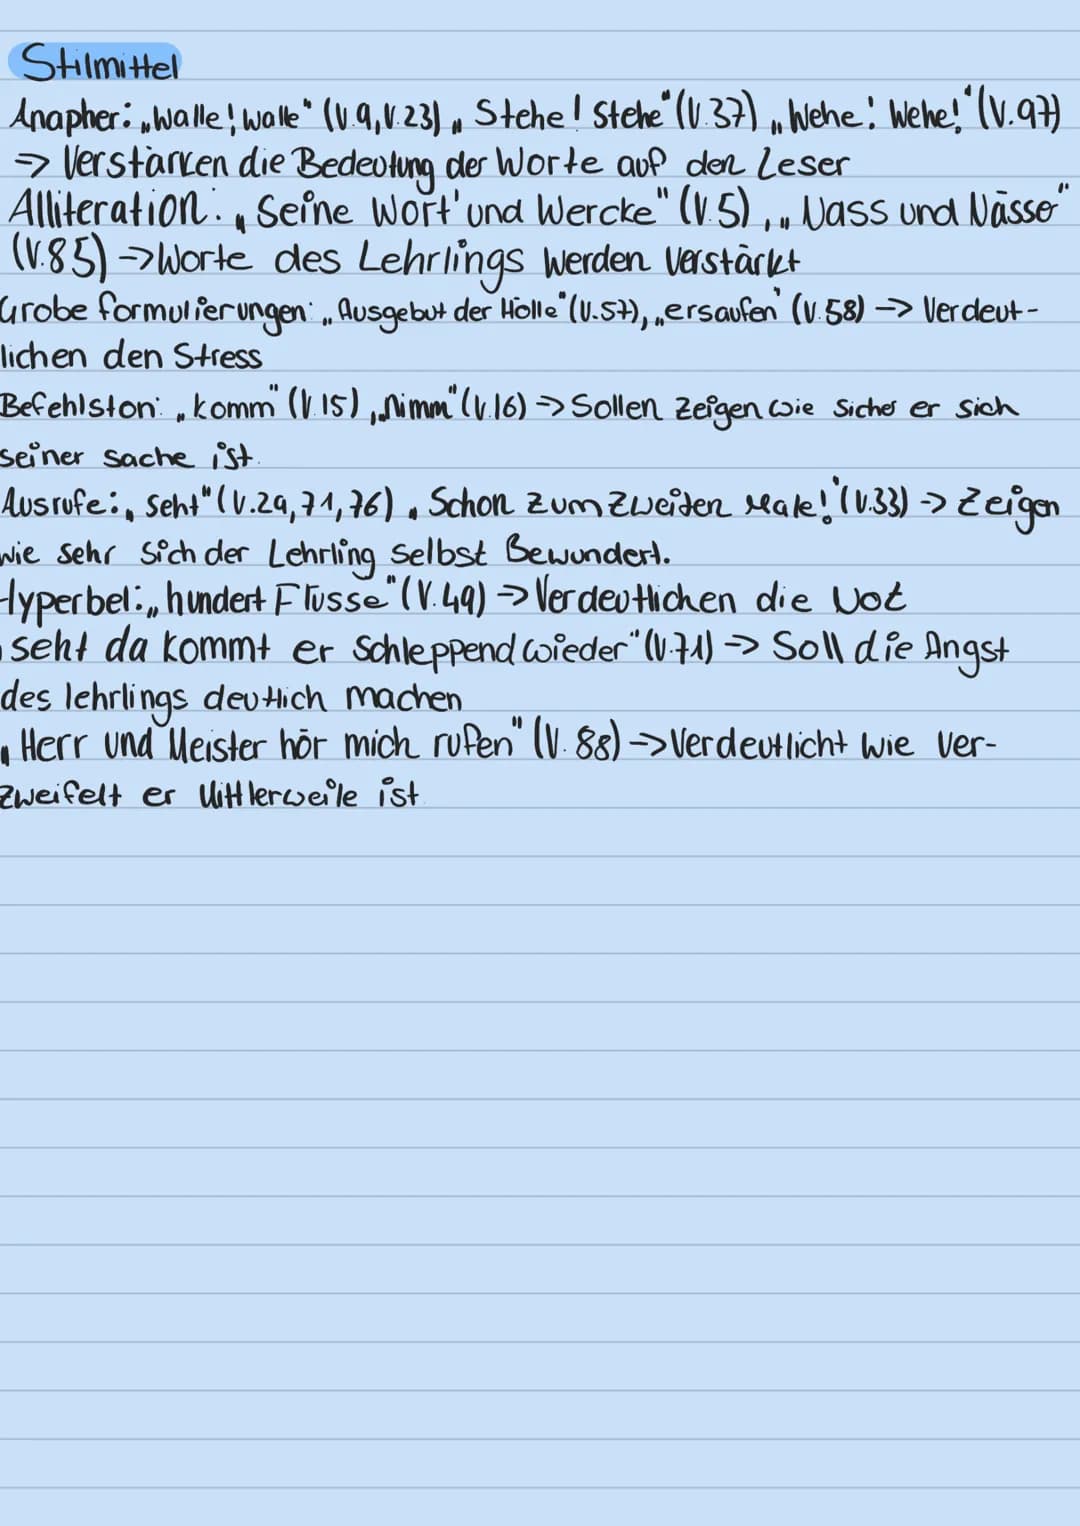 Stilmittel
Anapher: „Walle! walle" (V.9, V.23) „ Stehe! Stehe" (V.37) „Wehe! Wehe!" (V.97)
=> Verstärken die Bedeutung der Worte auf den Leser
Alliteration: „ Seine Wort' und Wercke" (V.5), „ Nass und Nässer"
(V.85) -> Worte des Lehrlings werden verstärkt
Grobe formulierungen: „Ausgebut der Hölle" (V.57), „ersaufen" (V.58) -> Verdeut-
lichen den Stress
Befehlston: „komm" (V.15) „Nimm" (V.16) => Sollen zeigen wie sicher er sich
seiner sache ist.
Ausrufe: „ seht" (V.29, 71, 76) „ Schon zum Zweiten Male!" (V.33) -> Zeigen
wie sehr sich der Lehrling selbst Bewundert.
Hyperbel: „hundert Flüsse" (V.49) -> Verdeutlichen die Not
„ seht da kommt er schleppend wieder" (V.71) -> Soll die Angst
des lehrlings deutlich machen
„ Herr und Meister hör mich rufen" (V. 88) -> Verdeutlicht wie ver-
zweifelt er Mittlerweile ist